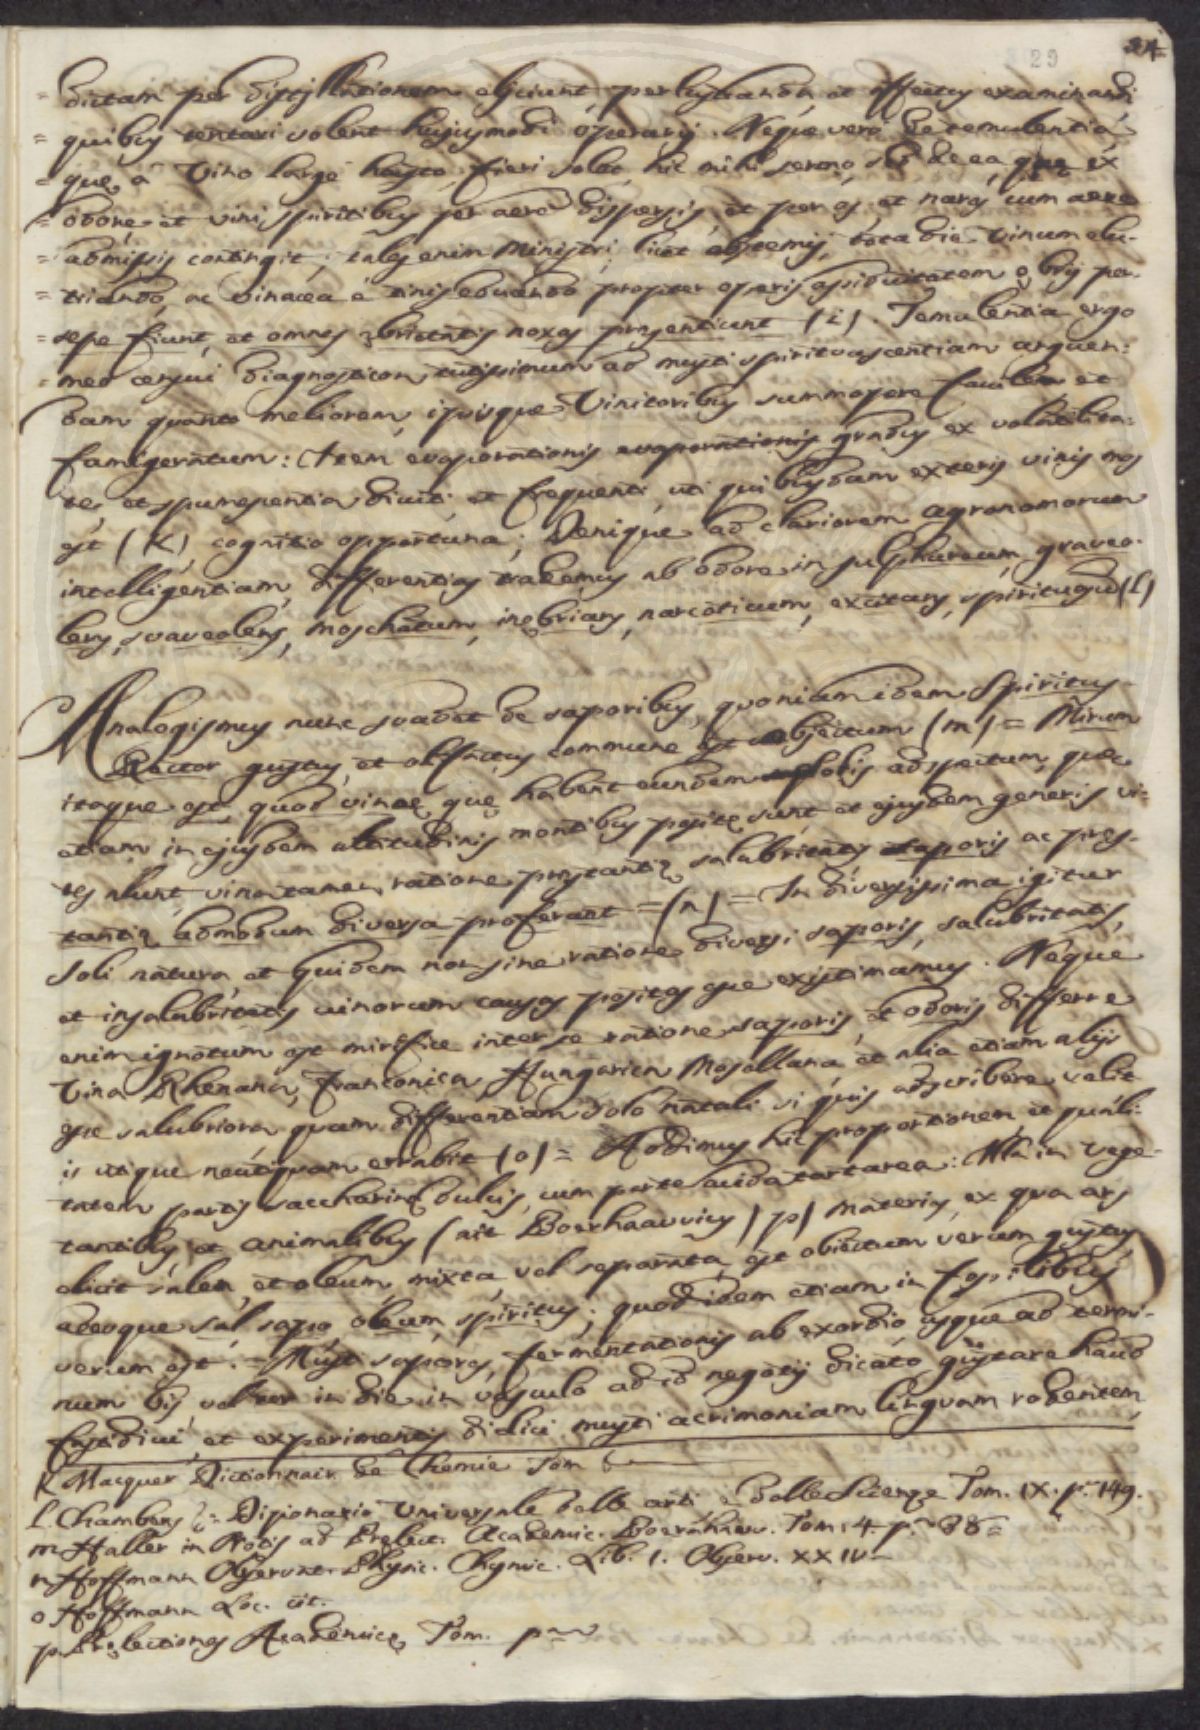 29 24
= dictam per distillationem eliciunt, perlustrandum et effectus examinandi
= quibus tentari solent hujusmodi operarij. Neque vero de temulentia
= quę a Vino largè hausto fieri solet hic mihi sermo, sed de ea, quę ex
= odore et vini spiritibus per aerem dispersis, et per os et nares cum aere
= admissis contingit; tales enim Ministri, licet abstemij, tota die Vinum elu-
= triando, ac vinacea e tinis educendo propter operis assiduitatem ebrij per-
= sepe fiunt, et omnes ebrietatis noxas prasentiunt (i). Temulentia ergo
= meo censui diagnosticon tutissimum ad musti spirituascentiam arguen:
dam quanto meliorem, ipsisque Vinitoribus summopere facilem et
famigeratum: Item evaporationis evaporationis gradus ex volatilita:
te, et spumescentia diuti, et frequenti, uti quibusdam exteris vinis mos
est (K) cognitio opportuna; Denique ad clariorem agronomorum
intelligentiam, differentias trademus ab odore in sulphureum, graveo-
lens, svaveolens, moschatum, inebrians, narcoticum, excitans, spirituosum (l)
Analogismus nunc svadet de saporibus, quoniam idem Spiritus
Rector gustus, et olfactus commune est objectum (m) = Mirum
itaque est, quod vineę, quę habent eundem solis adspectum, quęc
etiam in ejusdem altitudinis montibus positę sunt et ejusdem generis vi:
tes alunt, vina tamen ratione prastantię salubritatis saporis ac pras-
tantię admodum diversa proferant = (n) = In diversissima igitur
soli natura, et quidem non sine ratione diversi saporis, salubritatis,
et insalubritatis vinorum causas positas esse existimamus. Neque
enim ignotum est mirifice inter se ratione saporis, et odoris differre
Vina Rhenana, Franconica, Hungarica Mosellana, et alia etiam alijs
esse salubriora, quam differentiam solo natali si quis adscribere velit
is utique neutiquam errabit (o) = Addimus hic proportionem, et quali:
tatem partis saccharinę dulcis, cum parte acida tartarea: Illa in Vege-
tantibus, et animalibus (ait Boerhaavvius) p) materies, ex qua ars
elicit salem, et oleum, mixta, vel separata, est obiectum verum gustus
adeoque sal, sapo, oleum, spiritus; quod idem etiam in fossilibus
verum est. = Musti sapores, fermentationis ab exordio usque ad termi-
num bis, vel ter in die in vasculo ad id negotij dicato gustare haud
fastidivi, et experimentis didici musti acrimoniam linguam rodentem
K Macquer Dictionnair. de Chemie Tom
l. Chambers Dizionario Universale delle arti, e delle Scienze Tom. IX. p. 149.
m Haller in Notis ad Prelect. Academic. Boerhaav. Tom: 4. p. 88 =
n Hoffmann Observat. Physic. Chymic. Lib. 1. Observ. XXIV
o Hoffmann Loc. cit.
p. Prelectiones Academicę Tom. p